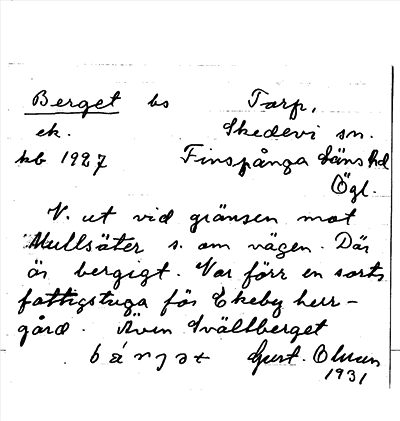 Berget bs Torp,
ek. Skedevi sn.
kb 1927 Finspånga läns hd
Ögl.
V. ut vid gränsen mot
Mullsäter s. om vägen. Där
är bergigt. Var förr en sorts
fattigstuga för Ekeby herr-
gård. Även Svältberget
Gust. Olsson
1931